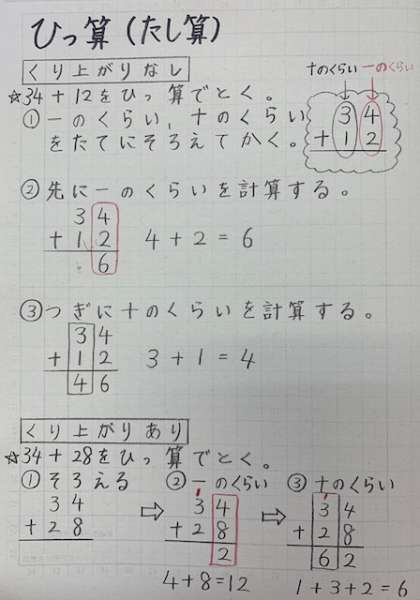 ひっ算(たし算)
くり上がりなし
十のくらい 一のくらい
☆34+12をひっ算でとく。
①一のくらい,十のくらい
をたてにそろえてかく。
34
+12
②先に一のくらいを計算する。
34
+12
6
4+2=6
③つぎに十のくらいを計算する。
34
+12
46
3+1=4
くり上がりあり
☆34+28をひっ算でとく。
①そろえる
34
+28
⇨
②一のくらい
34
+28
2
4+8=12
⇨
③十のくらい
34
+28
62
1+3+2=6